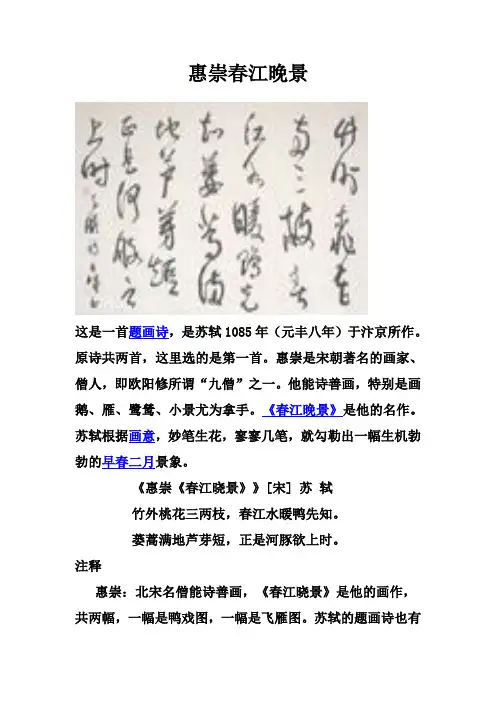 惠崇春江晚景
竹外桃花
两三枝春
江水暖鸭先
知蒌蒿满
地芦芽短
正是河豚欲
上时
这是一首题画诗，是苏轼1085年（元丰八年）于汴京所作。
原诗共两首，这里选的是第一首。惠崇是宋朝著名的画家、
僧人，即欧阳修所谓“九僧”之一。他能诗善画，特别是画
鹅、雁、鹭鸶、小景尤为拿手。《春江晚景》是他的名作。
苏轼根据画意，妙笔生花，寥寥几笔，就勾勒出一幅生机勃
勃的早春二月景象。
《惠崇《春江晓景》》[宋] 苏 轼
竹外桃花三两枝，春江水暖鸭先知。
蒌蒿满地芦芽短，正是河豚欲上时。
注释
惠崇：北宋名僧能诗善画，《春江晓景》是他的画作，
共两幅，一幅是鸭戏图，一幅是飞雁图。苏轼的题画诗也有